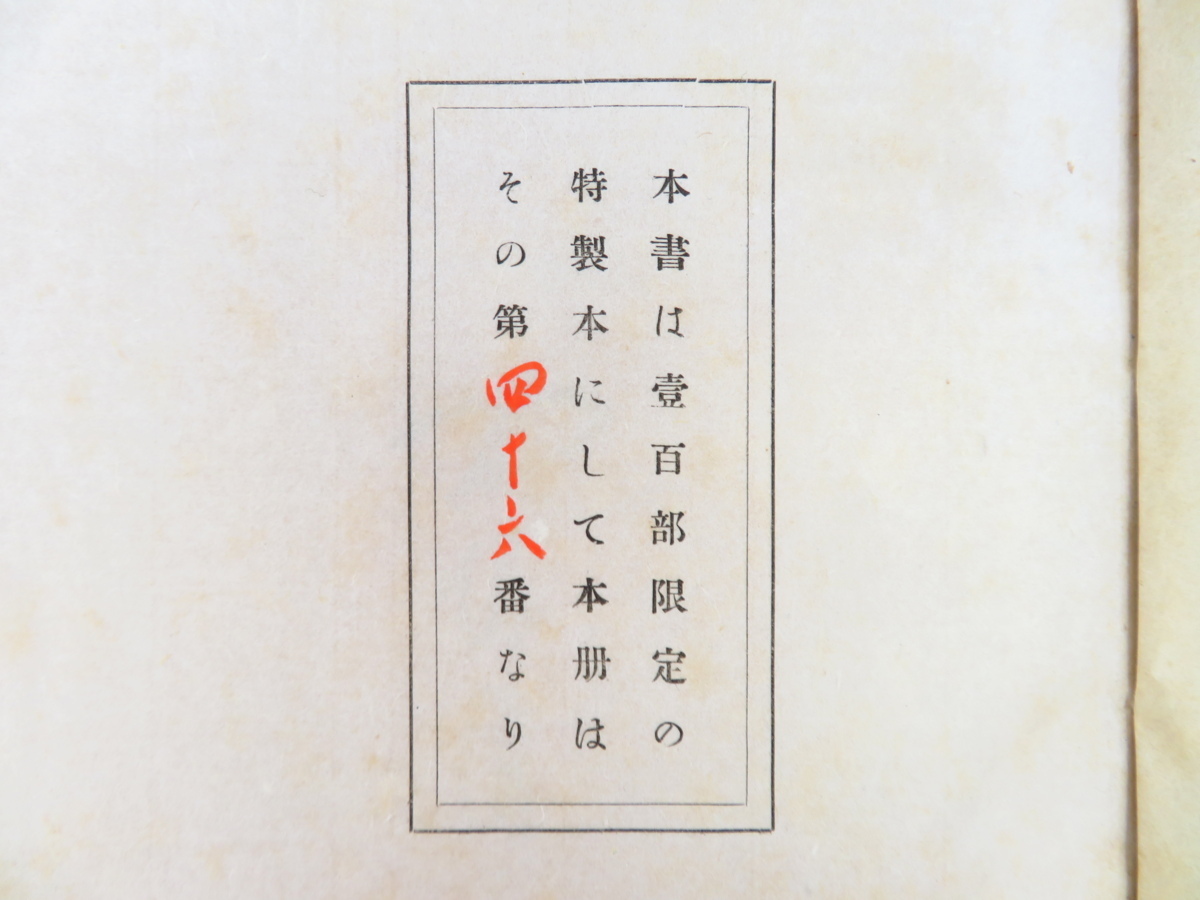 本書は壹百部限定の
特製本にして本册は
その第四十六番なり